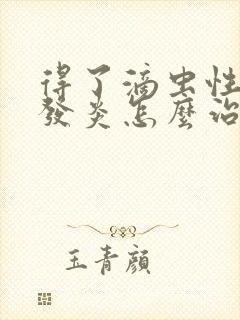 得了滴虫性
發炎怎麼治
玉青顏